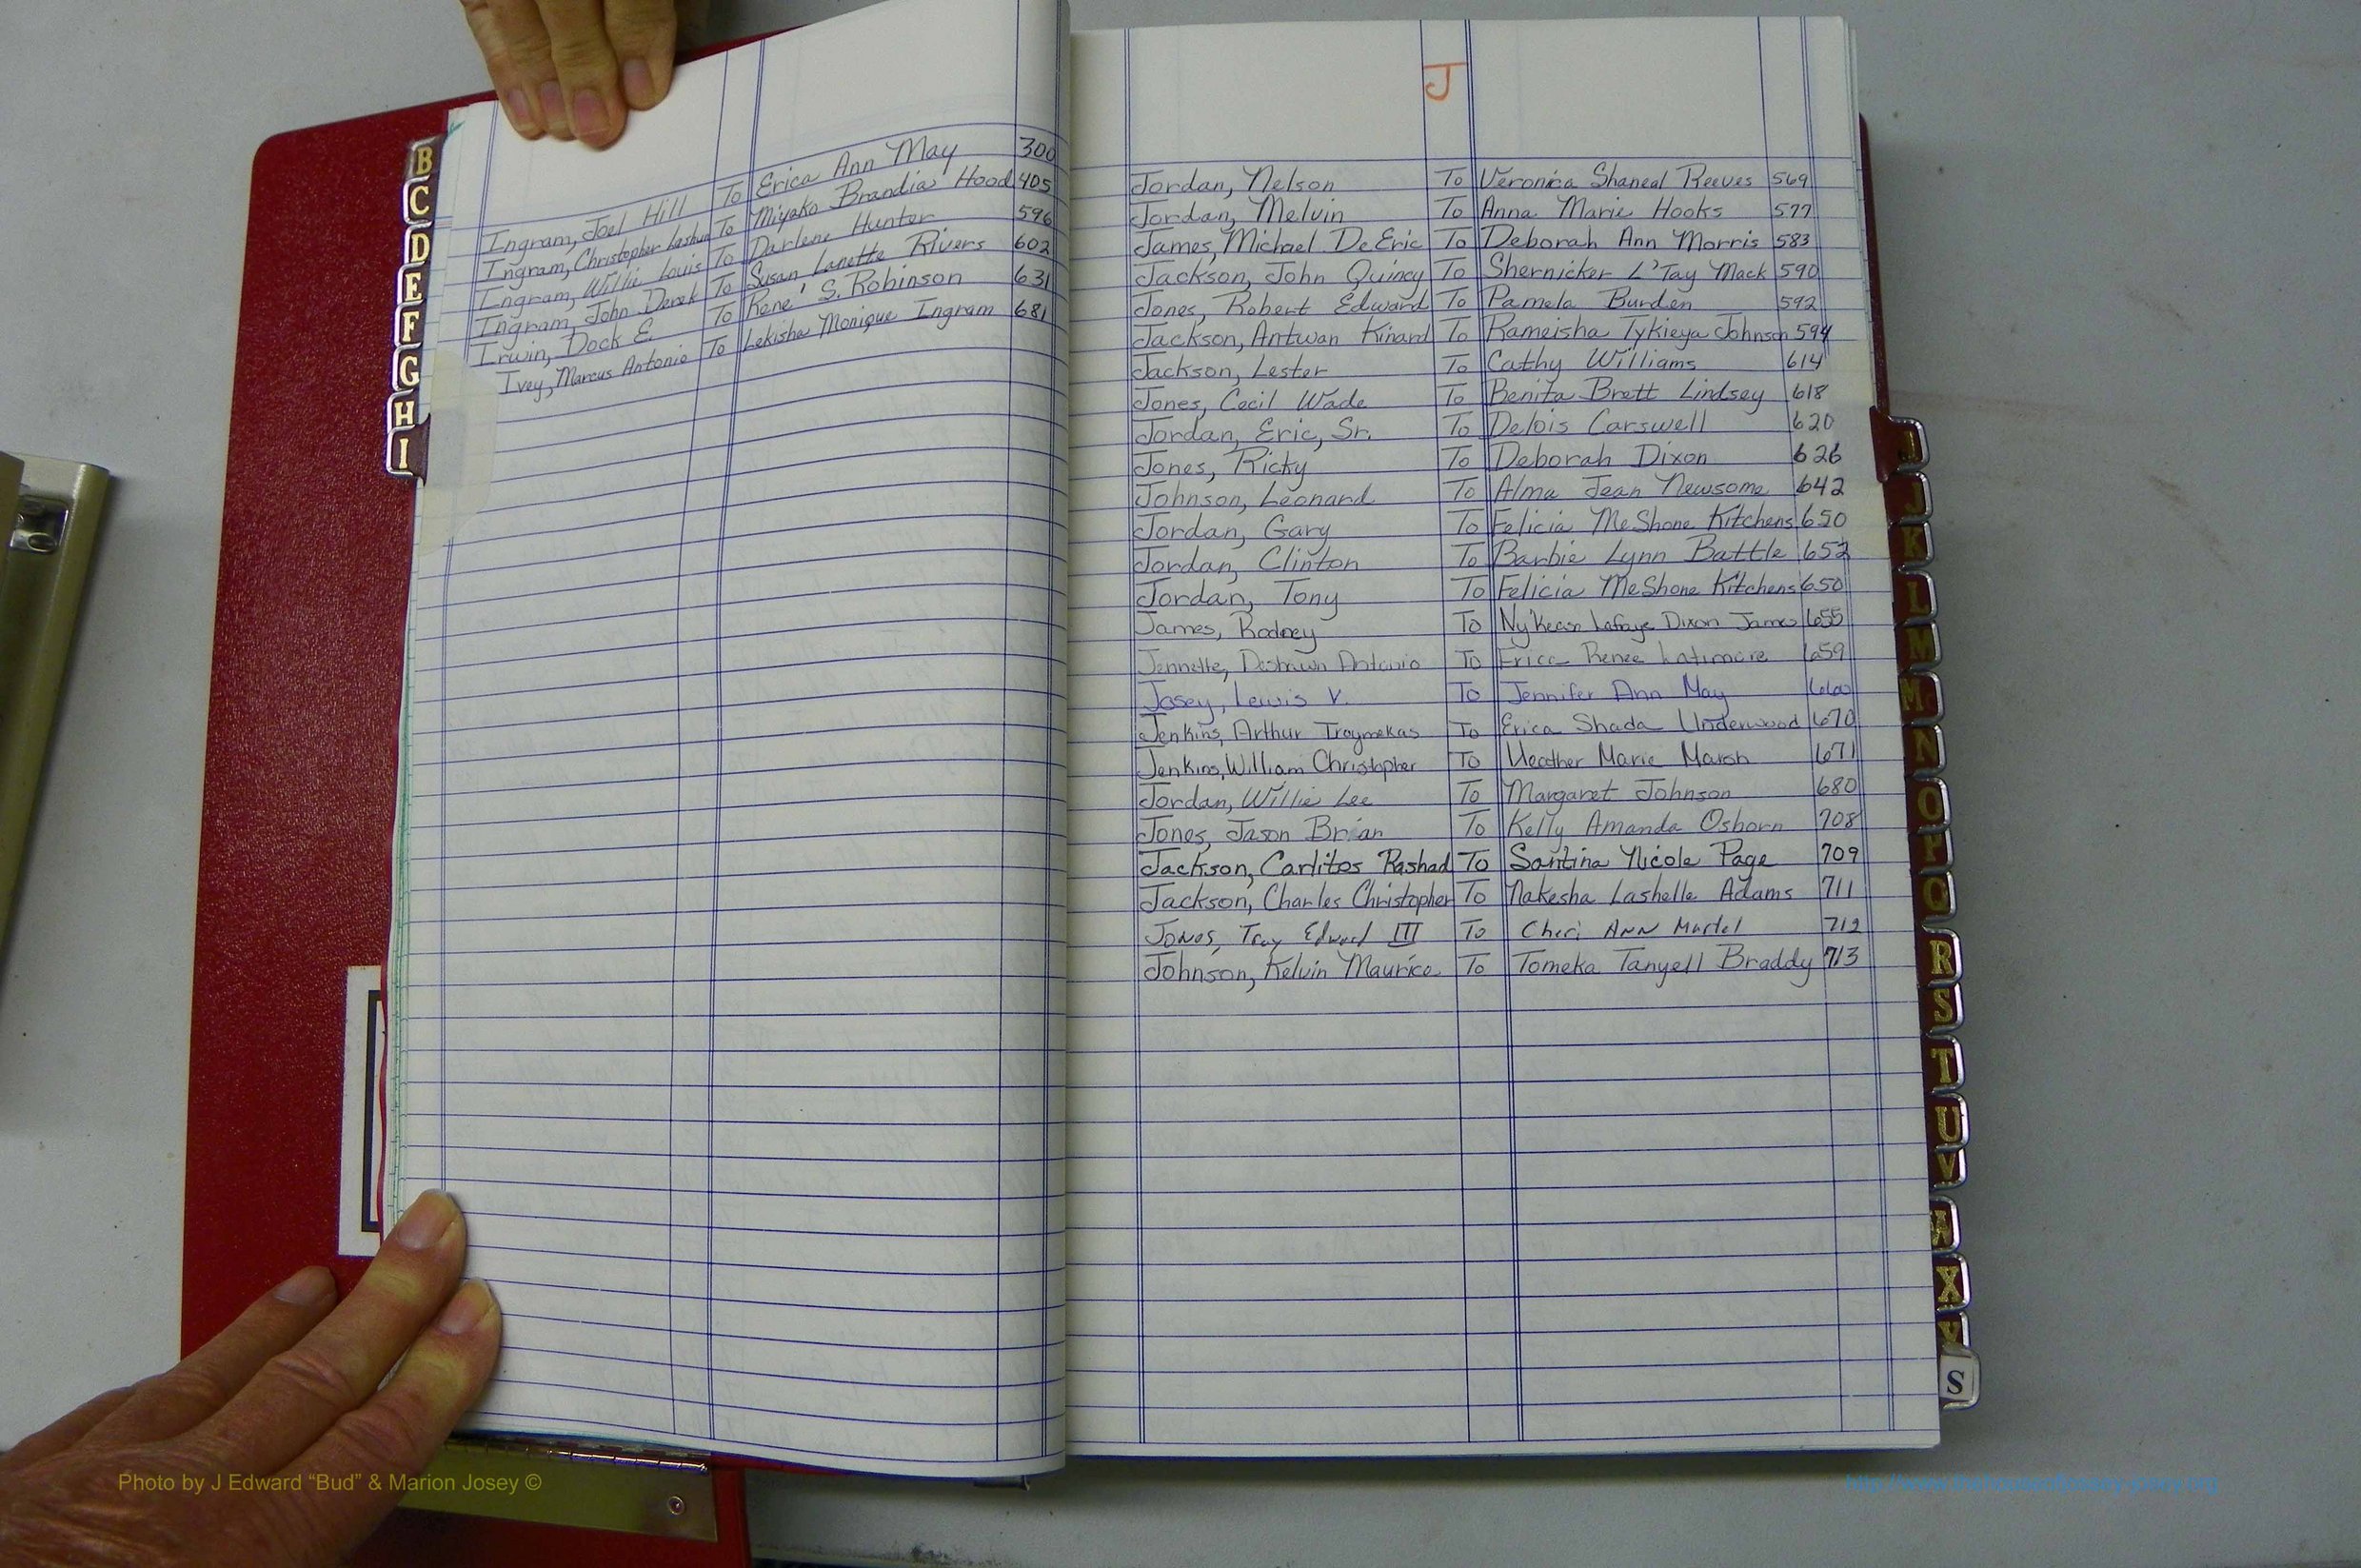 Ingram, Joel Hill To Erica Ann May 300
Ingram, Christopher To Miyako Brandia Hood 405
Ingram, Willie Louis To Darlene Hunter 596
Ingram, John Derek To Susan Lanette Rivers 602
Irwin, Dock E. To Rene' S. Robinson 631
Ivey, Marcus Antonio To Lekisha Monique Ingram 681
B
C
D
E
F
G
H
I
J
Jordan, Nelson To Veronica Shaneal Reeves 569
Jordan, Melvin To Anna Marie Hooks 577
James, Michael DeEric To Deborah Ann Morris 583
Jackson, John Quincy To Shernicker L'Tay Mack 590
Jones, Robert Edward To Pamela Burden 592
Jackson, Antwan Kinard To Rameisha Tykieya Johnson 594
Jackson, Lester To Cathy Williams 614
Jones, Cecil Wade To Benita Brett Lindsey 618
Jordan, Eric, Sr. To Delois Carswell 620
Jones, Ricky To Deborah Dixon 626
Johnson, Leonard To Alma Jean Newsome 642
Jordan, Gary To Felicia MeShone Kitchens 650
Jordan, Clinton To Barbie Lynn Battle 652
Jordan, Tony To Felicia MeShone Kitchens 650
James, Rodney To Dixon James 655
Jennette, Deshawn Antonio To Erica Renee Latimore 659
Josey, Lewis V. To Jennifer Ann May 660
Jenkins, Arthur Traymekas To Erica Shada Underwood 670
Jenkins, William Christopher To Heather Marie Marsh 671
Jordan, Willie Lee To Margaret Johnson 680
Jones, Jason Brian To Kelly Amanda Osborn 708
Jackson, Carlitos Rashad To Santina Nicole Page 709
Jackson, Charles Christopher To Nakesha Lashelle Adams 711
Jones, Troy Edward III To Cheri Ann Martel 712
Johnson, Kelvin Maurice To Tomeka Tanyell Braddy 713
I
J
K
L
M
Mc
N
O
P
Q
R
S
T
U
V
W
X
Y
S
Photo by J Edward “Bud” & Marion Josey ©